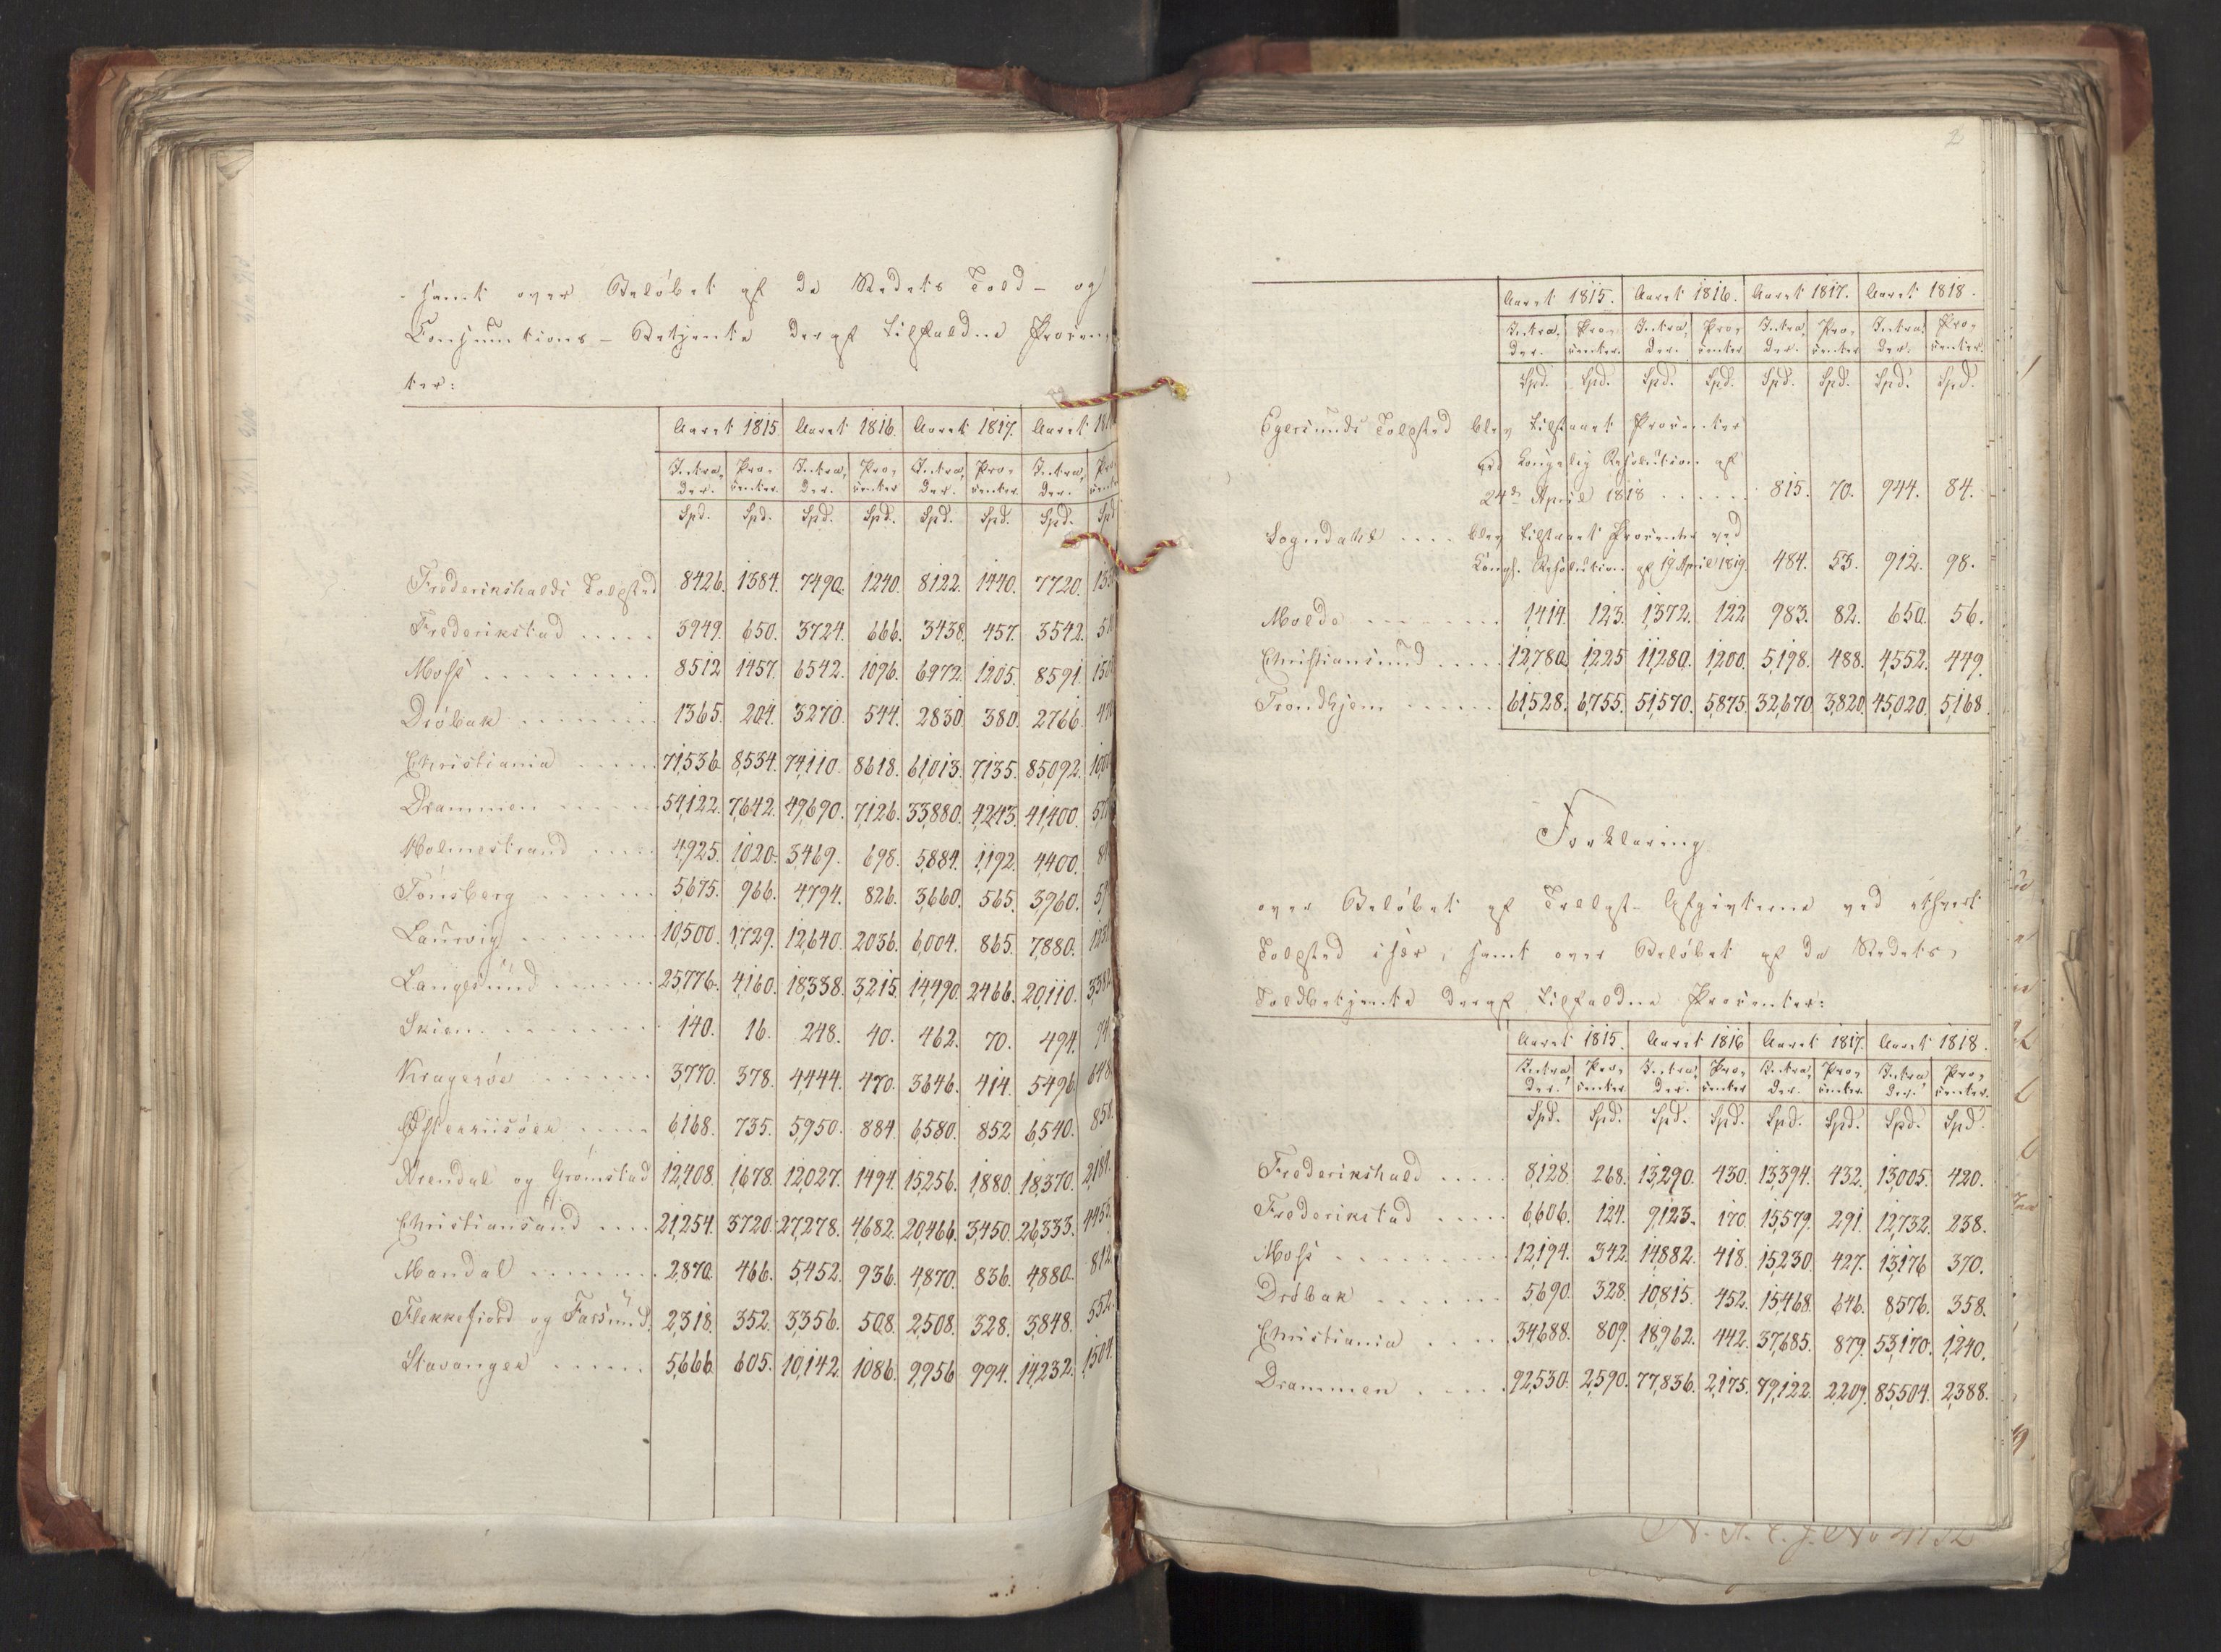 samt over Beløbet af de Stedets Told- og
Consumtions-Betjente deraf tilfaldne Proven-
ter:
Aaret 1815 Aaret 1816. Aaret 1817. Aaret
Intra- Pro- Intra- Pro- Intra- Pro- Intra- Pro-
der. venter. der. venter der. venter. der. venter
Spd. Spd. Spd. Spd. Spd. Spd. Spd. Spd
Frederikshalds Toldsted 8426. 1384. 7490. 1240. 8122. 1440. 7720.
Frederikstad ..... 3949. 650. 3724. 666. 3438. 457. 3542.
Moss ......... 8512 1457. 6542. 1096. 6972. 1205. 8591.
Dröbak ....... 1365. 204. 3270. 544. 2830. 380. 2766.
Christiania ..... 71,536. 8,534. 74,110. 8618. 61,013. 7,135. 85,092.
Drammen ...... 54,122. 7,642. 49,690. 7,126. 33,880. 4,243. 41,400.
Holmestrand .... 4,925. 1,020. 3,469. 698. 5,884. 1,192. 4,400.
Tönsberg ...... 5,675. 966. 4,794. 826. 3,660. 565. 3,960.
Laurwig ....... 10,500. 1,729. 12,640. 2036. 6,004. 865. 7,880.
Langesund ...... 25,776. 4,160. 18,338. 3,215. 14,490. 2466. 20,110. 3,382
Skien ........ 140. 16. 248. 40. 462. 70. 494. 74
Kragerøe ...... 3,770. 378. 4,444. 470. 3,646. 414. 5,496. 648
Østerriisöer .... 6,168. 735. 5,950. 884. 6,580. 852 6,540. 858.
Arendal og Grömstad 12,408. 1,678. 12,027. 1,494. 15,256. 1,880. 18,370. 2,184.
Christiansand .... 21,254. 3,720. 27,278. 4,682. 20,466. 3,450. 26,333. 4455.
Mandal ....... 2,870. 466. 5,452. 936. 4,870. 836. 4,880. 812.
Flekkefiord og Farsund. 2,318. 352. 3,356. 508. 2,508. 328. 3,848. 552.
Stavanger ...... 5,666. 605. 10,142. 1086. 9,956 994. 14,232. 1,504.
Aaret 1815. Aaret 1816. Aaret 1817. Aaret 1818.
Intra- Pro- Intra- Pro- Intra- Pro- Intra- Pro-
der. venter. der. venter der. venter der. venter.
Spd. Spd. Spd. Spd. Spd. Spd. Spd. Spd.
Egersunds Toldsted blev tilstaaet Proventer
ved Kongelig Resolution af
24de April 1818 ...... 815. 70. 944. 84.
Sogndahl .... blev tilstaaet Proventer ved
Kongl. Resolution af 19 April 1819. 484. 53. 912. 98.
Molde ........ 1,414. 123. 1,372. 122 983. 82. 650. 56.
Christiansund ..... 12,780. 1,225 11,280. 1,200. 5,198. 488. 4,552. 449.
Trondhjem ...... 61,528. 6,755. 51,570. 5,875. 32,670. 3,820. 45,020. 5,168.
Forklaring
over Beløbet af Trelast-Afgivterne ved ethvert
Toldsted især, samt over Beløbet af de Stedets
Toldbetjente deraf tilfaldne Proventer:
Aaret 1815. Aaret 1816 Aaret 1817. Aaret 1818.
Intra- Pro- Intra- Pro- Intra- Pro- Intra- Pro-
der. venter der. venter der. venter. der. venter.
Spd. Spd. Spd. Spd. Spd. Spd. Spd. Spd.
Frederikshald ..... 8,128. 268. 13,290. 430. 13,394. 432. 13,005. 420.
Frederikstad ..... 6,606. 124. 9,123. 170. 15,579. 291. 12,732. 238.
Moss ........ 12,194. 342. 14,882. 418. 15,230. 427. 13,176 370.
Dröbak ...... 5,690. 328. 10,815. 452. 15,468. 646. 8,576. 358.
Christiania .... 34,688. 809. 18,962. 442. 37,685. 879. 53,170. 1,240.
Drammen .... 92,530. 2,590. 77,836. 2,175. 79,122. 2,209. 85,504. 2,388.